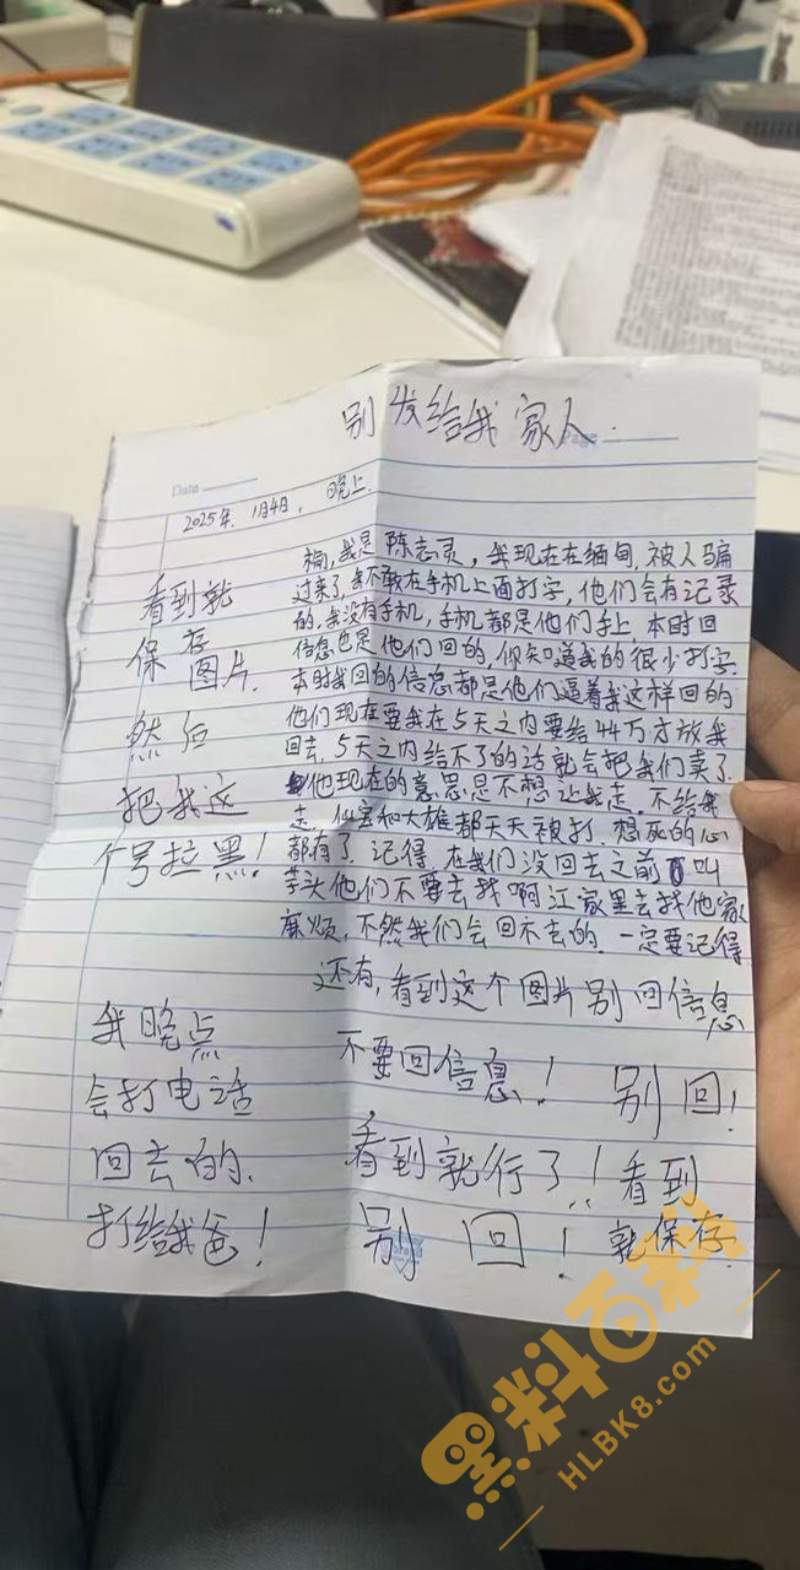 别发给我家人.
Page
Date
2025年. 1月4日, 晚上.
我是陈志灵, 我现在在缅甸, 被人骗
过来了, 我不敢在手机上面打字, 他们会有记录
的, 我没有手机, 手机都是他们手上, 本时回
信息也是他们回的, 你知道我的很少打字.
本时我回的信息都是他们逼着我这样回的
他们现在要我在5天之内要给44万才放我
回去, 5天之内给不了的话就会把我们卖了.
他现在的意思是不想让我走, 不给我
走, 和大雄都天天被打, 想死的心
都有了, 记得, 在我们没回去之前叫
芋头他们不要去找啊江家里去找他家
麻烦, 不然我们会回不去的, 一定要记得
还有, 看到这个图片别回信息
不要回信息! 别回!
看到就行了! 看到
别回! 就保存.
看到就
保存
图片.
然后
把我这
个号拉黑!
我晚点
会打电话
回去的.
打给我爸!
黑料百科
HLBK8.com